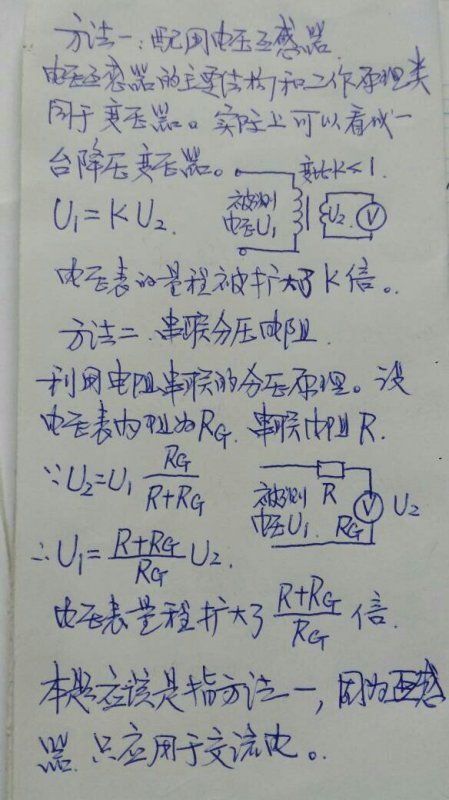 方法一:配用电压互感器
电压互感器的主要结构和工作原理类
同于变压器。实际上可以看成一
台降压变压器。 变比K<1.
U₁=KU₂. 被测 U₂ V
电压U₁
电压表的量程被扩大了K倍。
方法二.串联分压电阻.
利用电阻串联的分压原理。设
电压表内阻为RG.串联电阻R.
∵U₂=U₁ RG/(R+RG) 被测 R V U₂
电压U₁. RG
∴U₁=(R+RG)/RG U₂.
电压表量程扩大了 (R+RG)/RG 倍.
本题应该是指方法一,因为互感
器.只应用于交流电。